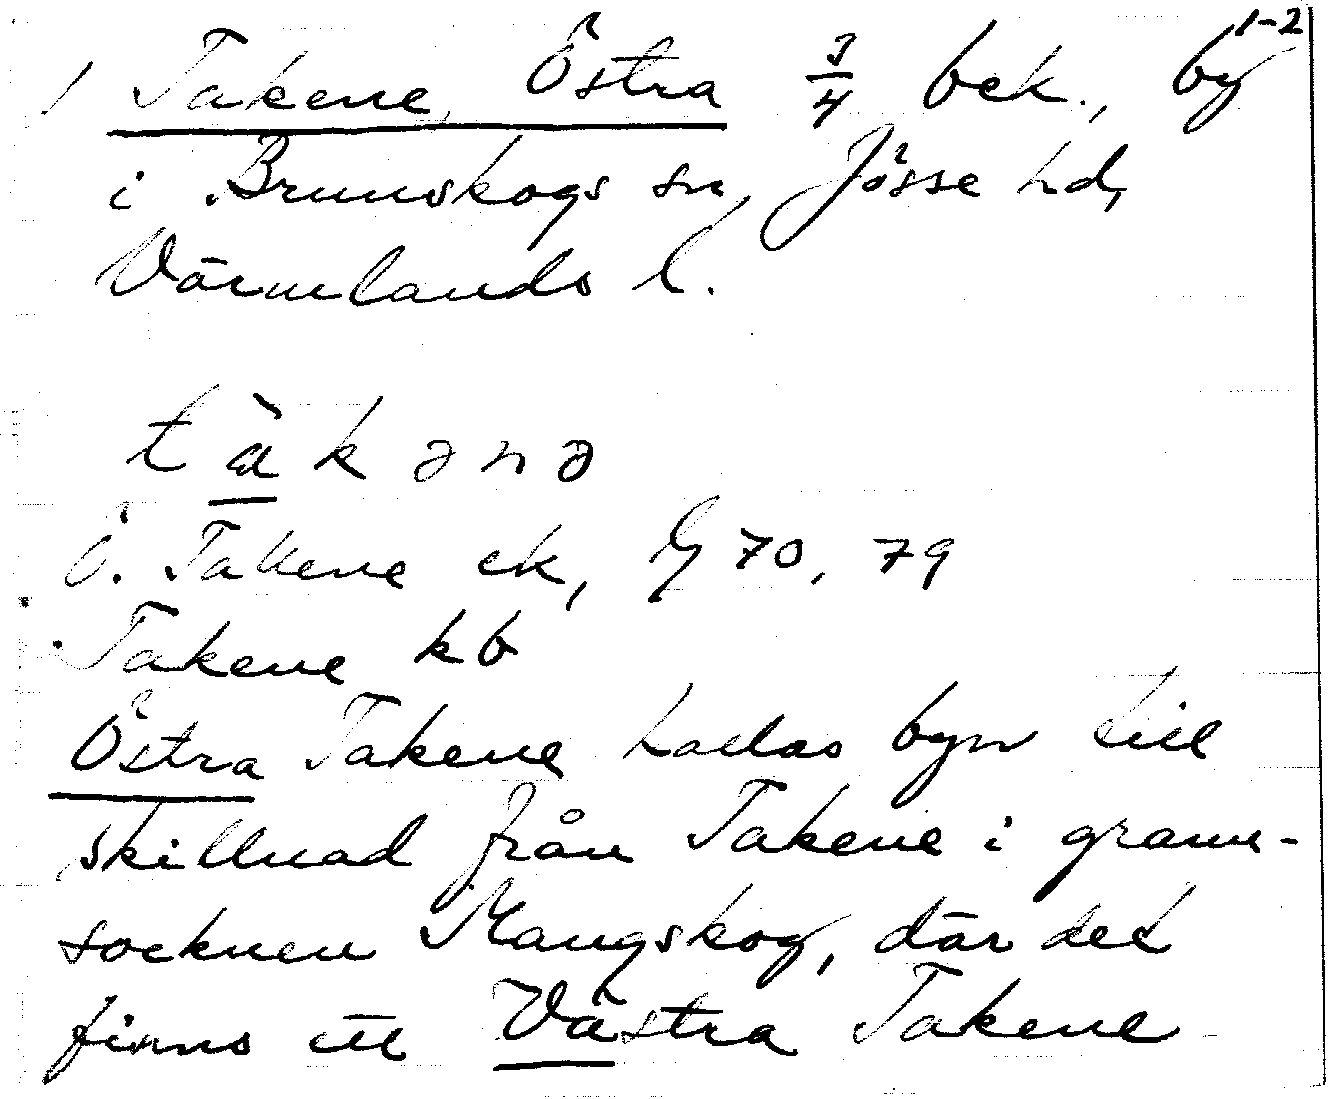 1-2
1 Takene, Östra 3/4 bek., by
i Brunskogs sn, Jösse hd,
Värmlands l.
tàkənə
Ö. Takene ek, G 70, 79
Takene kb
Östra Takene kallas byn till
skillnad från Takene i grann-
socknen Mangskog, där det
finns ett Västra Takene